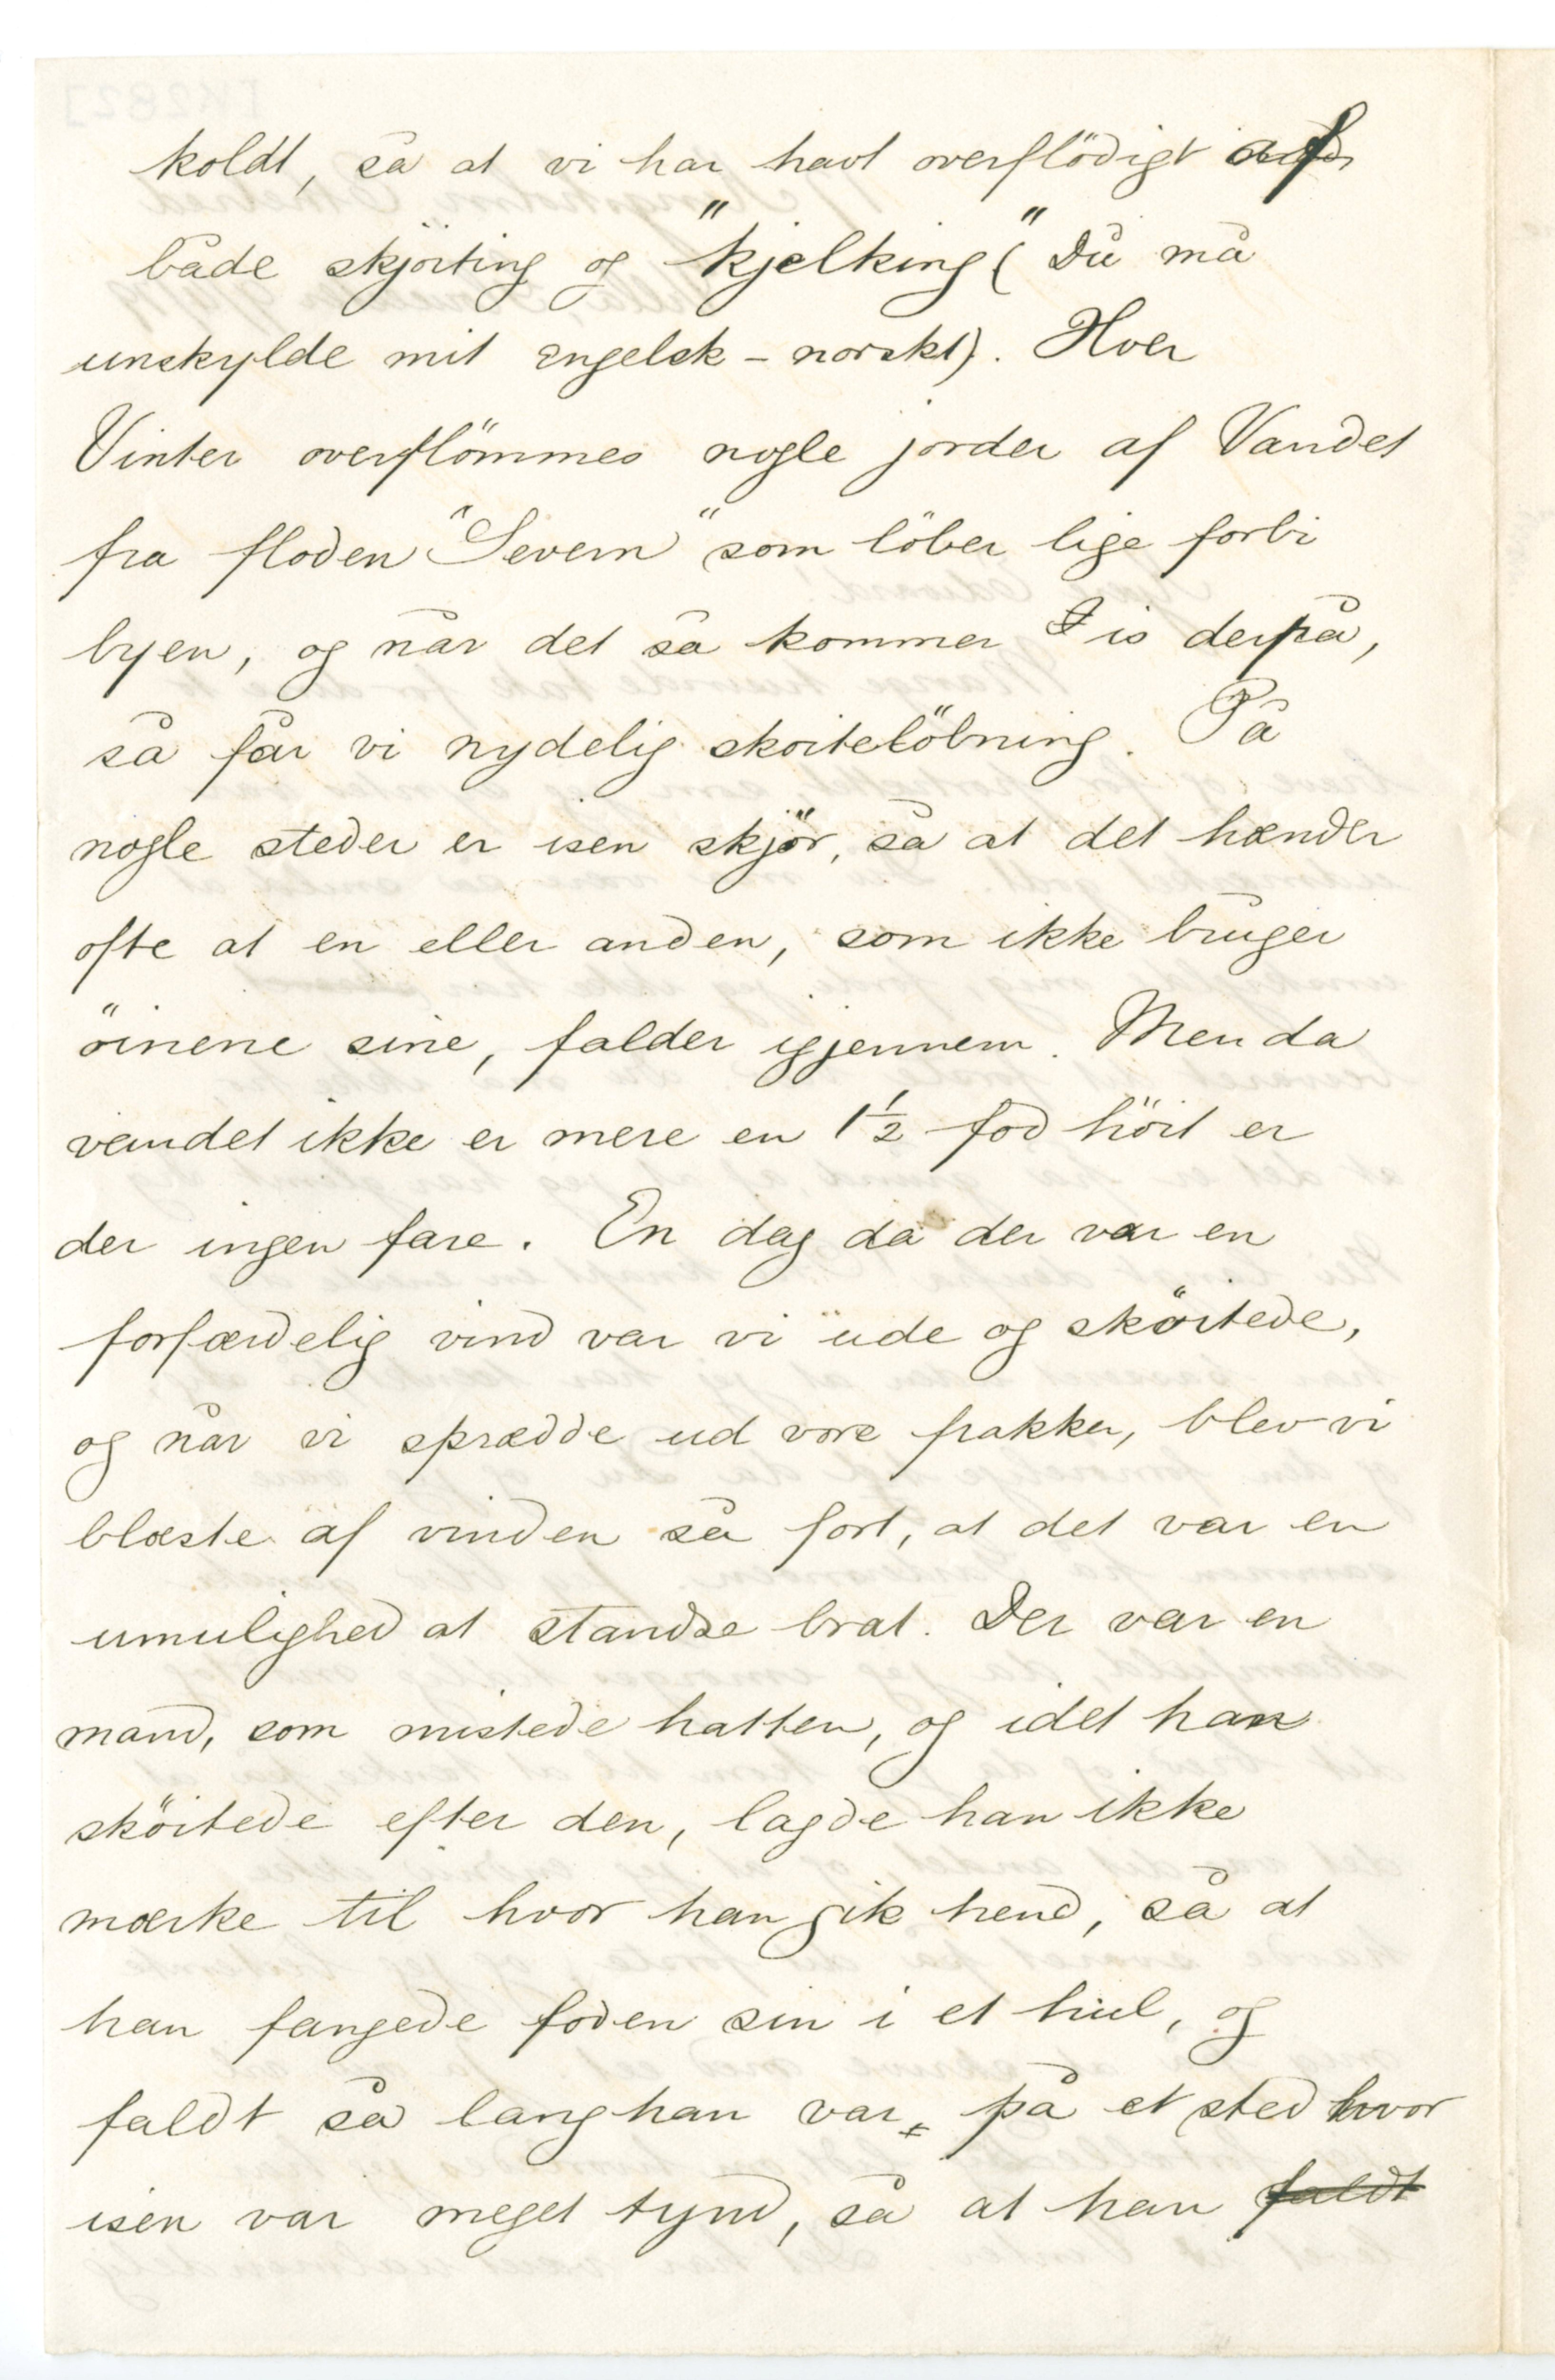 koldt, så at vi har havt overflödigt af
både skjöiting og "kjelking" (Du må
unskylde mit Engelsk-norskt). Hver
Vinter overflömmes nogle jorder af Vandet
fra floden "Severn" som löber lige forbi
byen, og når det så kommer is derpå,
så får vi nydelig skoitelöbning. På
nogle steder er isen skjör, så at det hænder
ofte at en eller anden, som ikke bruger
öinene sine, falder igjennem. Men da
vandet ikke er mere en 1½ fod höit er
der ingen fare. En dag da der var en
forfærdelig vind var vi ude og sköitede,
og når vi sprædde ud vore frakker, blev vi
blæste af vinden så fort, at det var en
umulighed at standse brat. Der var en
mand, som mistede hatten, og idet han
sköitede efter den, lagde han ikke
mærke til hvor han gik hend, så at
han fangede foden sin i et hul, og
faldt så lang han var, på et sted hvor
isen var meget tynd, så at han faldt